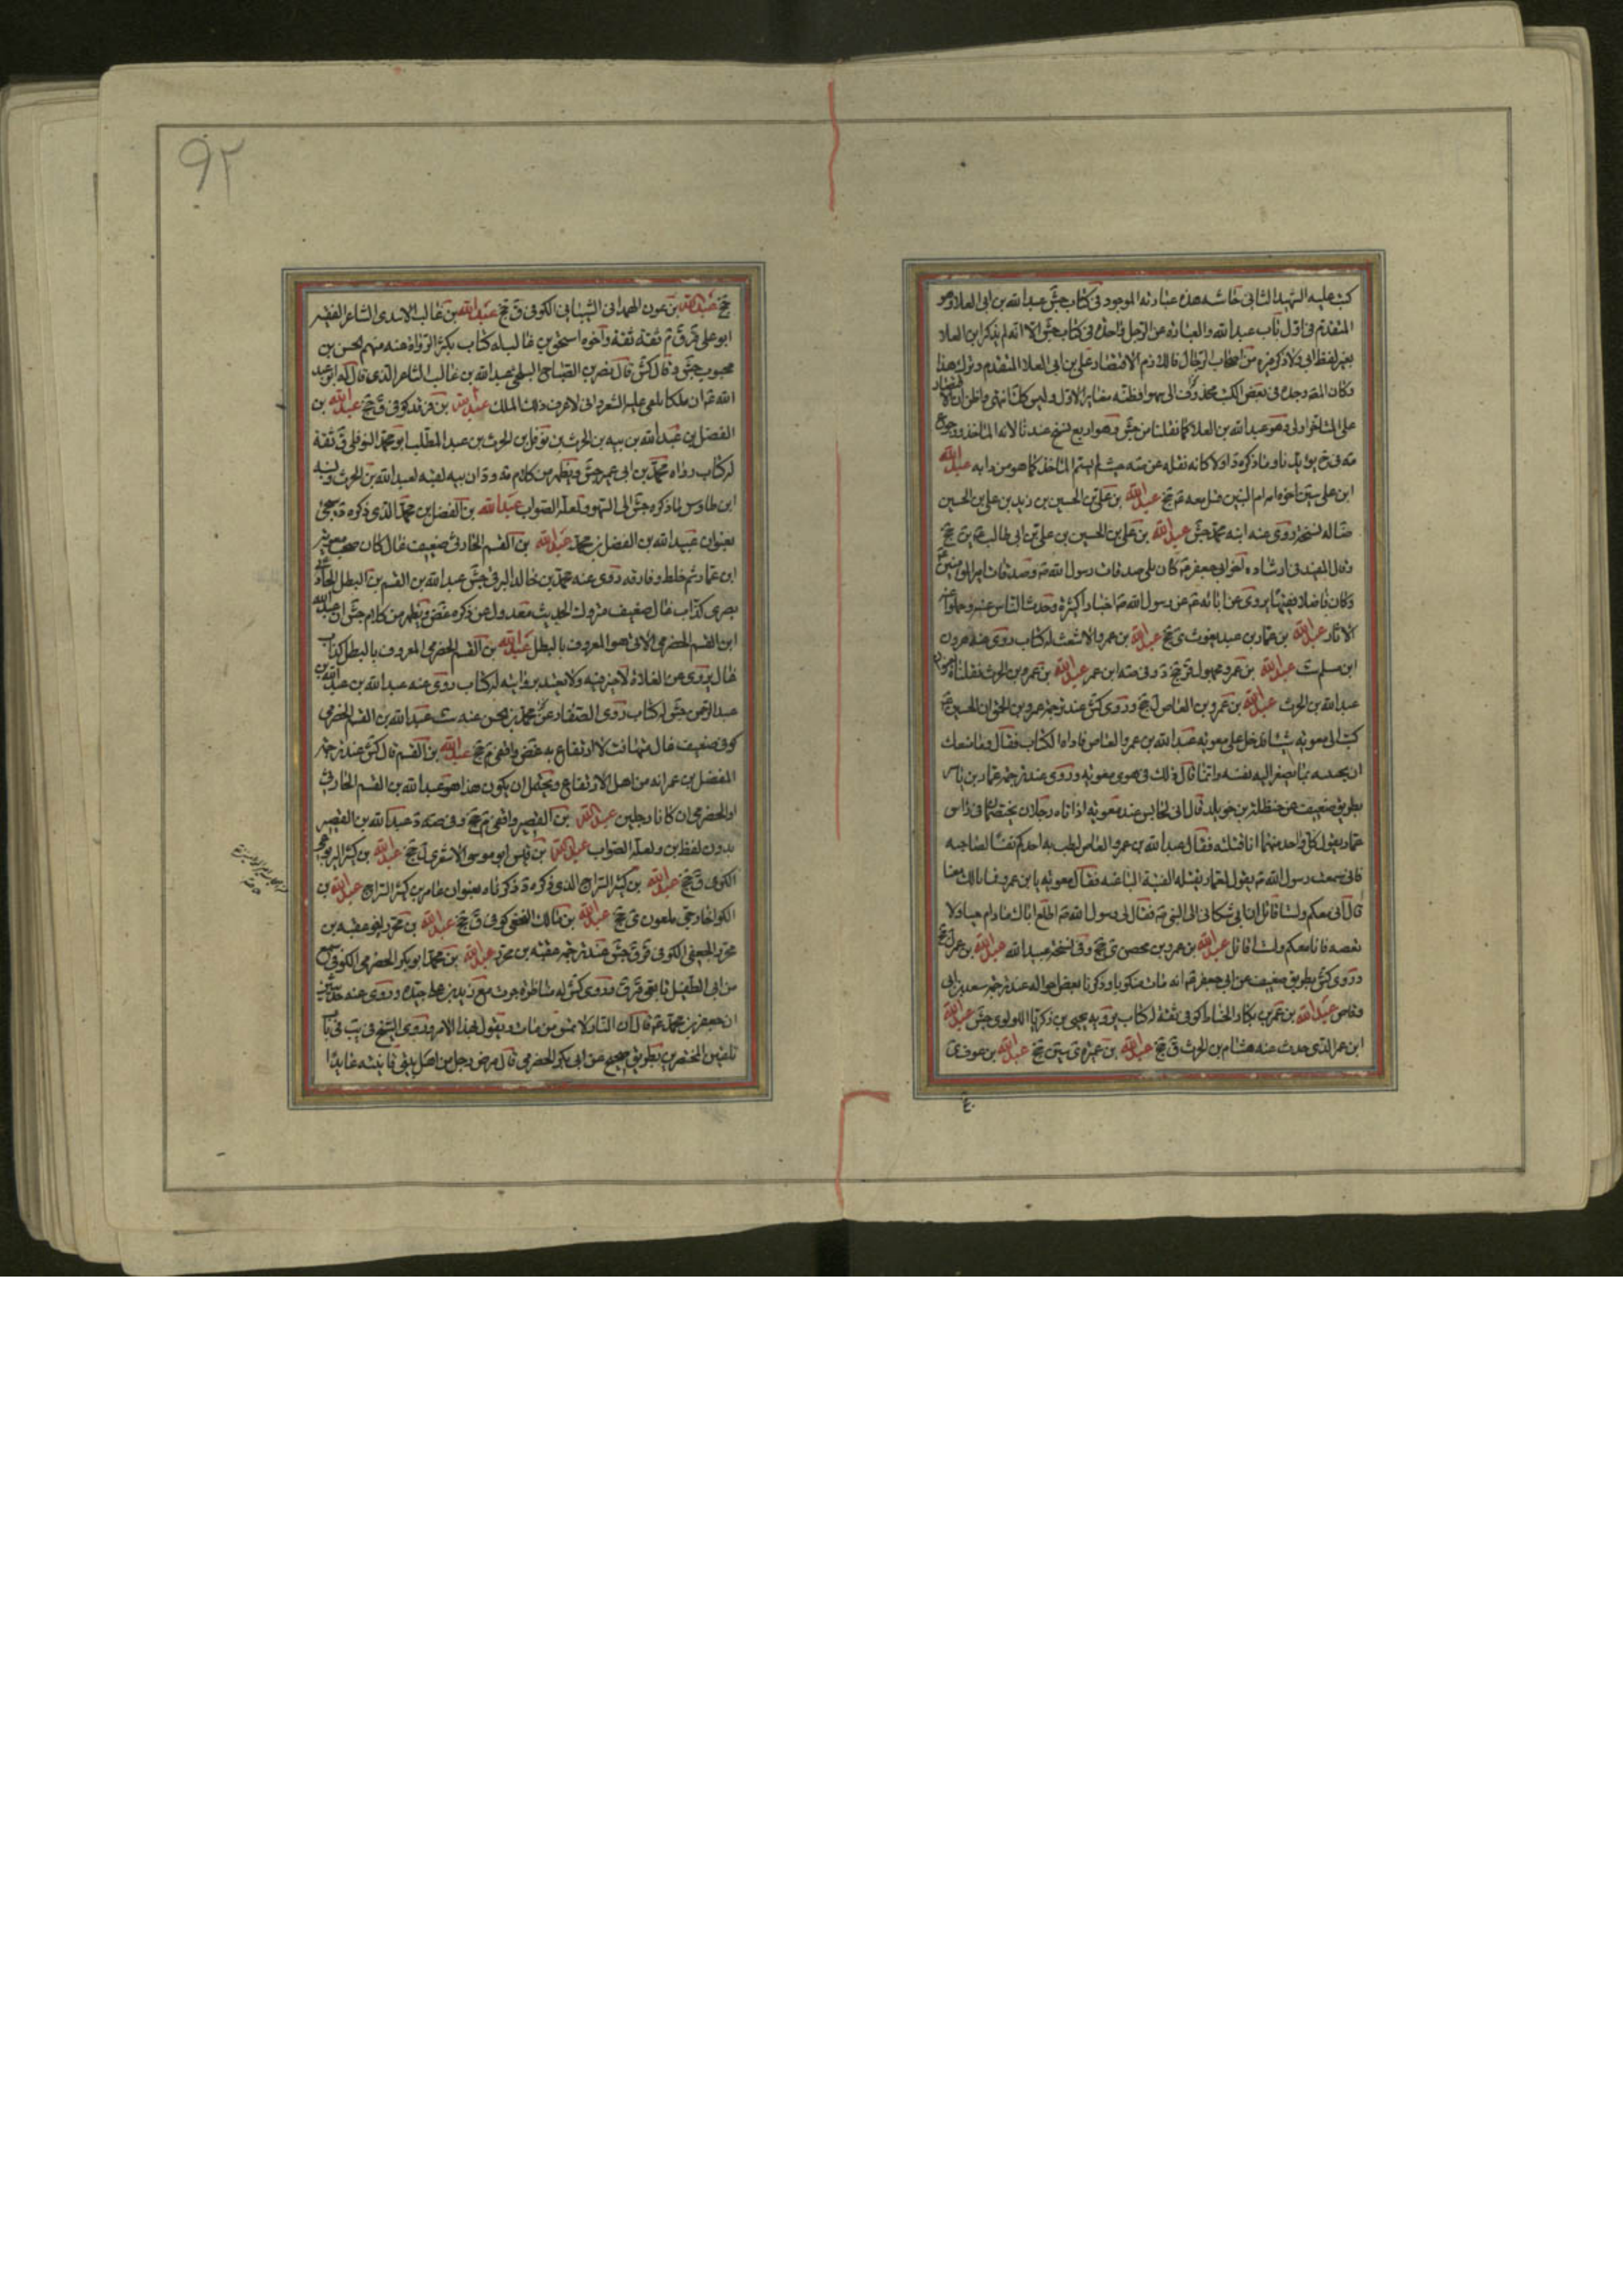 كتب عليه الشهيد الثاني حاشية هذه عبارته الموجود في كتاب جش عبد الله بن ابي العلا وهو
المتقدم في اول باب عبد الله والعبارة عن الرجل واحدة في كتاب جش الا انه لم يذكر ابن العلاء
بغير لفظ ابي ولا ذكر غيره من اصحاب الرجال ذلك فلزم الاقتصار على بن ابي العلا المتقدم وترك هذا
وكان المص وجده في بعض الكتب محذوف ابي سهوا فظنه مغايرا للاول وليس كك انتهى
على المتاخر اولى وهو عبد الله بن العلاء كما نقلنا من جش وهو اربع نسخ عندنا لانه الماخذ ورجوع
مه في ضح يؤيدنا وما ذكره د اولا كانه نقله عن مه حيث لم يسم الماخذ كما هو من دابه عبد الله
ابن علي سين اخوه امه ام البنين قتل معه عم جخ عبد الله بن علي بن الحسين بن زيد بن علي بن الحسين
ضا له نسخة روى عنه ابنه محمد جش عبد الله بن علي بن الحسين بن علي بن ابي طالب ين جخ
وقال المفيد في ارشاده اخو ابي جعفر عم كان يلي صدقات رسول الله ص وصدقات امير المؤمنين
وكان فاضلا فقيها يروى عن ابائه عم عن رسول الله ص اخبارا كثيرة وحدث الناس عنه وحملوا عنه
الاثار عبد الله بن عمار بن عبد يغوث ي جخ عبد الله بن عمرو الاشعث له كتاب روى عنه هرون
ابن مسلم ست عبد الله بن عمرو مجهول قر جخ د وفي مه ابن عمر عبد الله بن عمرو بن الحرث
عبد الله بن الحرث عبد الله بن عمرو بن العاص ل جخ وروى كش عند ترجمة عمرو بن الحمق ان الحسين عم
كتب الى معوية شيئا فدخل على معوية عبد الله بن عمرو العاص فاراه الكتاب فقال وما يمنعك
ان يجيبه بما يصغر اليه نفسه وانما قال ذلك في هوى معوية وروى عند ترجمة عمار بن ياسر
بطريق ضعيف عن حنظلة بن خويلد قال اني لجالس عند معوية اذ اتاه رجلان يختصمان في راس
عمار يقول كل واحد منهما انا قتلته فقال عبد الله بن عمرو العاص ليطب به احدكم نفسا لصاحبه
فاني سمعت رسول الله ص يقول لعمار تقتله الفئة الباغية فقال معوية يا بن عمرو فما بالك معنا
قال اني معكم ولست اقاتل ان ابي شكاني الى النبي ص فقال لي رسول الله ص اطع اباك ما دام حيا ولا
تعصه فانا معكم ولست اقاتل عبد الله بن عمرو بن محصن ي جخ وفي نسخة عبيد الله عبد الله بن عمر ل جخ
وروى كش بطريق ضعيف عن ابي جعفر عم انه مات منكوبا وذكرنا بعض احواله عند ترجمة سعد بن ابي
وقاص عبد الله بن عمر بن بكار الحناط كوفي ثقة له كتاب يرويه يحيى بن زكريا اللولوي جش عبد الله
ابن عمر الذي حدث عنه هشام بن الحرث ق جخ عبد الله بن عميرة ي سين جخ عبد الله بن عوف ي
جخ
٩٢
جخ عبد الله بن عون الهمداني الشيباني الكوفي ق جخ عبد الله بن غالب الاسدي الشاعر الفقيه
ابو علي قر ق م ثقة ثقة واخوه اسحق بن غالب له كتاب يكثر الرواة عنه منهم الحسن بن
محبوب جش وقال كش قال نصر بن الصباح البلخي عبد الله بن غالب الشاعر الذي قال له ابو عبد
الله عم ان ملكا يلقي عليه الشعر واني لاعرف ذلك الملك عبد الله بن فرقد كوفي ق جخ عبد الله بن
الفضل بن عبد الله بن ببه بن الحرث بن نوفل بن الحرث بن عبد المطلب ابو محمد النوفلي ق ثقة
له كتاب رواه محمد بن ابي عمير جش ويظهر من كلام مه ود ان ببه لقب لعبد الله بن الحرث
ابن طاوس ما ذكره جش الى السهو ولعله الصواب عبد الله بن الفضل بن محمد الذي ذكره مه سيجئ
بعنوان عبيد الله بن الفضل بن محمد عبد الله بن القسم الحارثي ضعيف غال كان صحب معوية
ابن عمار ثم خلط وفارقه روى عنه محمد بن خالد البرقي جش عبد الله بن القسم بن البطل الحارثي
بصري كذاب غال ضعيف متروك الحديث معدول عن ذكره غض ويظهر من كلام جش ان عبد الله
ابن القسم الحضرمي الاتي هو المعروف بالبطل عبد الله بن القسم الحضرمي المعروف بالبطل كذاب
غال يروى عن الغلاة لا خير فيه ولا يعتد بروايته له كتاب روى عنه عبد الله بن عبد الله بن
عبد الرحمن جش له كتاب روى الصفار عن محمد بن الحسن عنه ست عبد الله بن القسم الحضرمي
كوفي ضعيف غال متهافت لا ارتفاع به غض واقفي م جخ عبد الله بن القسم قال كش عند ترجمة
المفضل بن عمر انه من اهل الارتفاع ويحتمل ان يكون هذا هو عبد الله بن القسم الحارثي
او الحضرمي ان كانا رجلين عبد الله بن القصير واقفي م جخ وفي مه د عبد الله بن القصير
بدون لفظ بن ولعله الصواب عبد الله بن قيس ابو موسى الاشعري ل جخ عبد الله بن كثير
الكوفي ق جخ عبد الله بن كثير السراج الذي ذكره د ذكرناه بعنوان عامر بن كثير السراج عبد الله بن
الكوا خارجي ملعون ي جخ عبد الله بن مالك النخعي كوفي ق جخ عبد الله بن محرز اخو عقبه بن
محرز الجعفي الكوفي قر ق جش عند ترجمة عقبه بن محرز عبد الله بن محمد ابو بكر الحضرمي الكوفي سمع
من ابي الطفيل تابعي قر ق وروى كش له مناظرة جرت مع زيد بن علي جيدة وروى عنه حديثين
ان جعفر بن محمد عم قال ان النار لا تمس من مات وهو يقول بهذا الامر وروى الشيخ في يب في باب
تلقين المحتضرين بطريق صحيح عن ابي بكر الحضرمي قال مرض رجل من اهل بيتي فاتيته عايدا